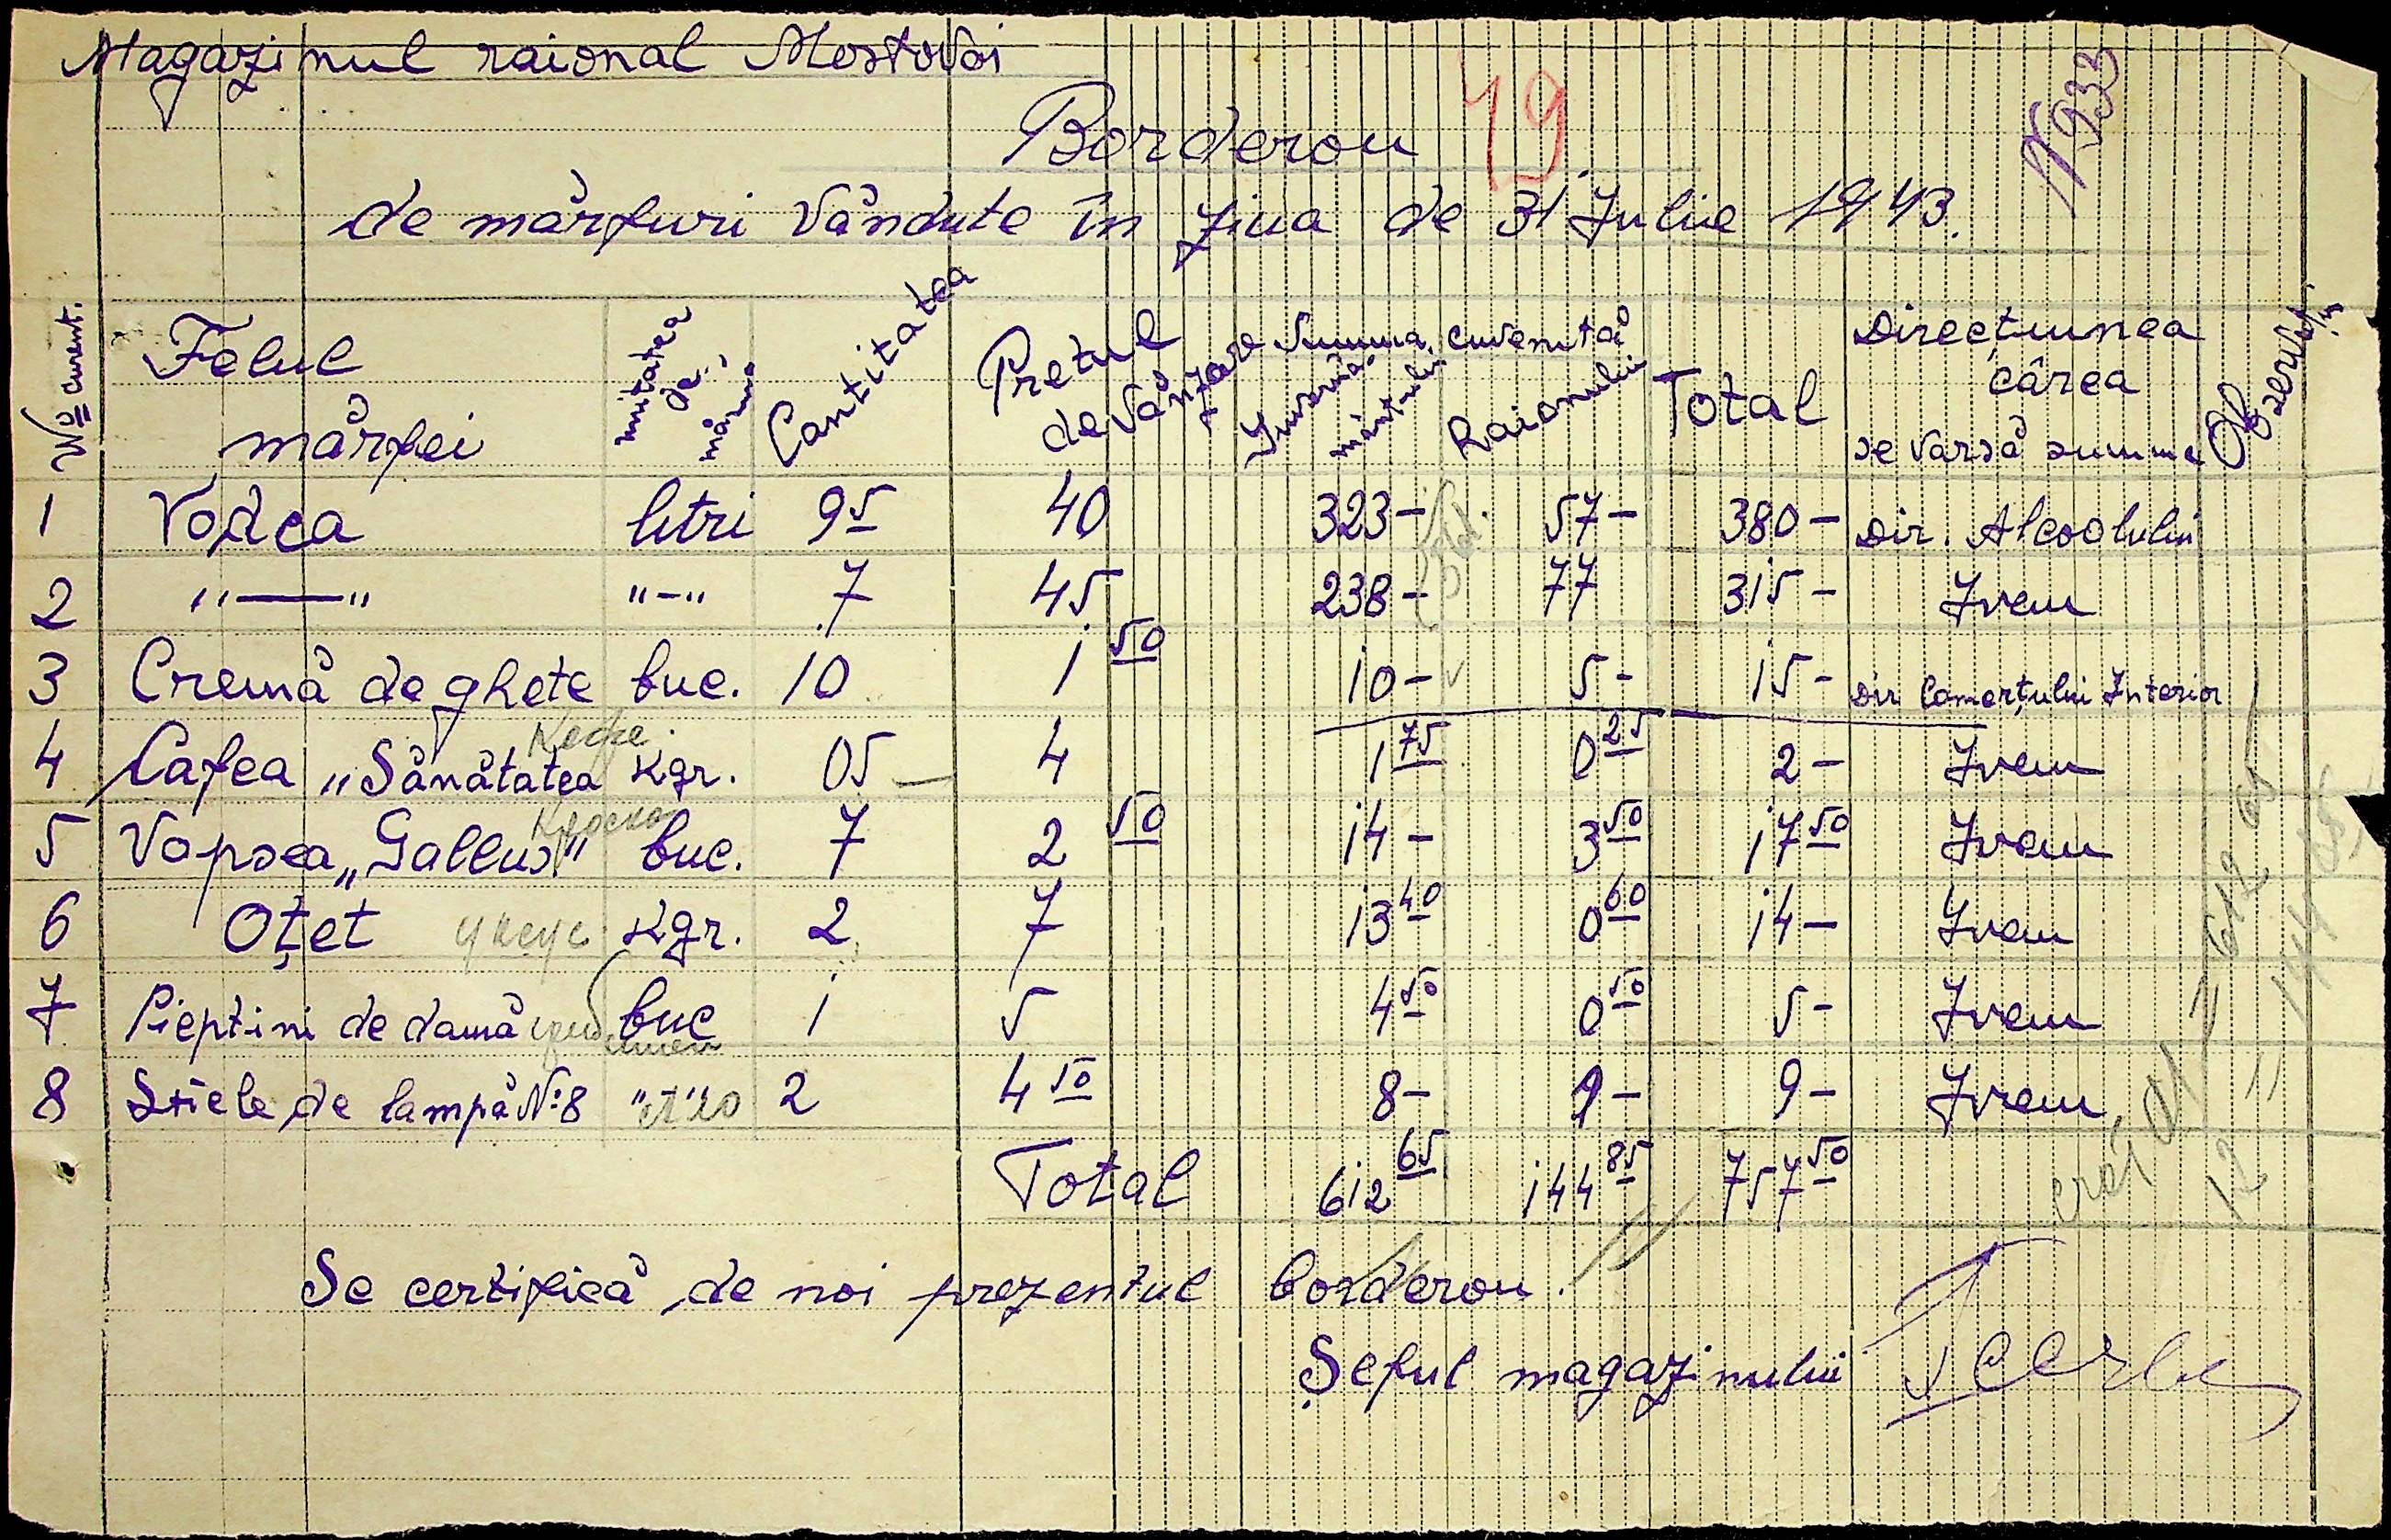 Magazinul raional Mostovoi
N 933
Borderou 49
de mărfuri vândute în ziua de 31 Iulie 1943.
No curent. Felul mărfei unitatea de măsură Cantitatea Prețul de vânzare Summa cuvenită Guvernământului Raionului Total Direcțiunea cărea se varsă summa Observații
1 Vodca litri 9 5 40 323 – 57 – 380 – Dir. Alcoolului
2 "—" "–" 7 45 238 – 77 315 – Ivem
3 Cremă de ghete buc. 10 1 50 10 – 5 – 15 – Dir Comerțului Interior
4 Cafea "Sănătatea Кофе kgr. 05 4 1 75 0 25 2 – Ivem
5 Vopsea "Gallus" Краска buc. 7 2 50 14 – 3 50 17 50 Ivem
6 Oțet уксус kgr. 2 7 13 40 0 60 14 – Ivem
7 Pieptini de damă buc 1 5 4 50 0 50 5 – Ivem
8 Stiele de lampă No 8 " " 2 4 50 8 – 1 – 9 – Ivem
Total 612 65 144 85 757 50
Se certifică de noi prezentul borderou.
Șeful magazinului